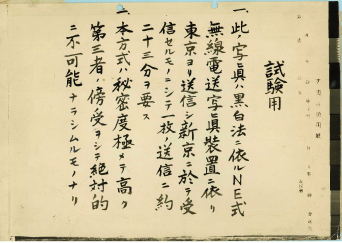 試験用
一、此ノ写眞ハ黒白法ニ依ルNE式
無線電送写眞装置ニ依リ
東京ヨリ送信シ新京ニ於テ受
信セルモノニシテ一枚ノ送信ニ約
二十三分ヲ要ス
二、本方式ハ秘密度極メテ高ク
第三者ノ傍受ヲシテ絶対的
ニ不可能ナラシムルモノナリ